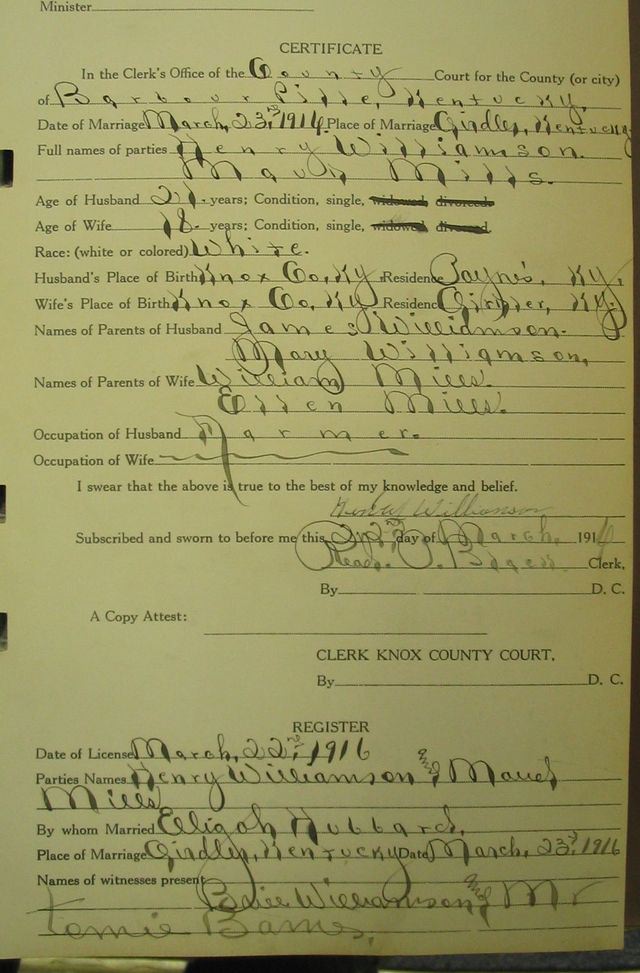 Minister
CERTIFICATE
In the Clerk's Office of the County Court for the County (or city)
of Barbourville, Kentucky,
Date of Marriage March, 23rd, 1914. Place of Marriage Girdler, Kentucky
Full names of parties Henry Williamson.
Maud Mills.
Age of Husband 21. years; Condition, single, widowed divorced
Age of Wife 18. years; Condition, single, widowed divorced
Race: (white or colored) White.
Husband's Place of Birth Knox Co, Ky. Residence Payne's, Ky.
Wife's Place of Birth Knox Co, Ky. Residence Girdler, Ky.
Names of Parents of Husband James Williamson.
Mary Williamson,
Names of Parents of Wife William Mills.
Ellen Mills.
Occupation of Husband Farmer.
Occupation of Wife
I swear that the above is true to the best of my knowledge and belief.
Henry Williamson
Subscribed and sworn to before me this 22nd day of March, 1914
Read. P. Clerk,
By D. C.
A Copy Attest:
CLERK KNOX COUNTY COURT,
By D. C.
REGISTER
Date of License March, 22nd, 1916
Parties Names Henry Williamson and Maud
Mills
By whom Married Eligah Hubbard,
Place of Marriage Girdler, Kentucky Date March, 23rd, 1916
Names of witnesses present
Williamson, and Mr
Tomie Barnes,